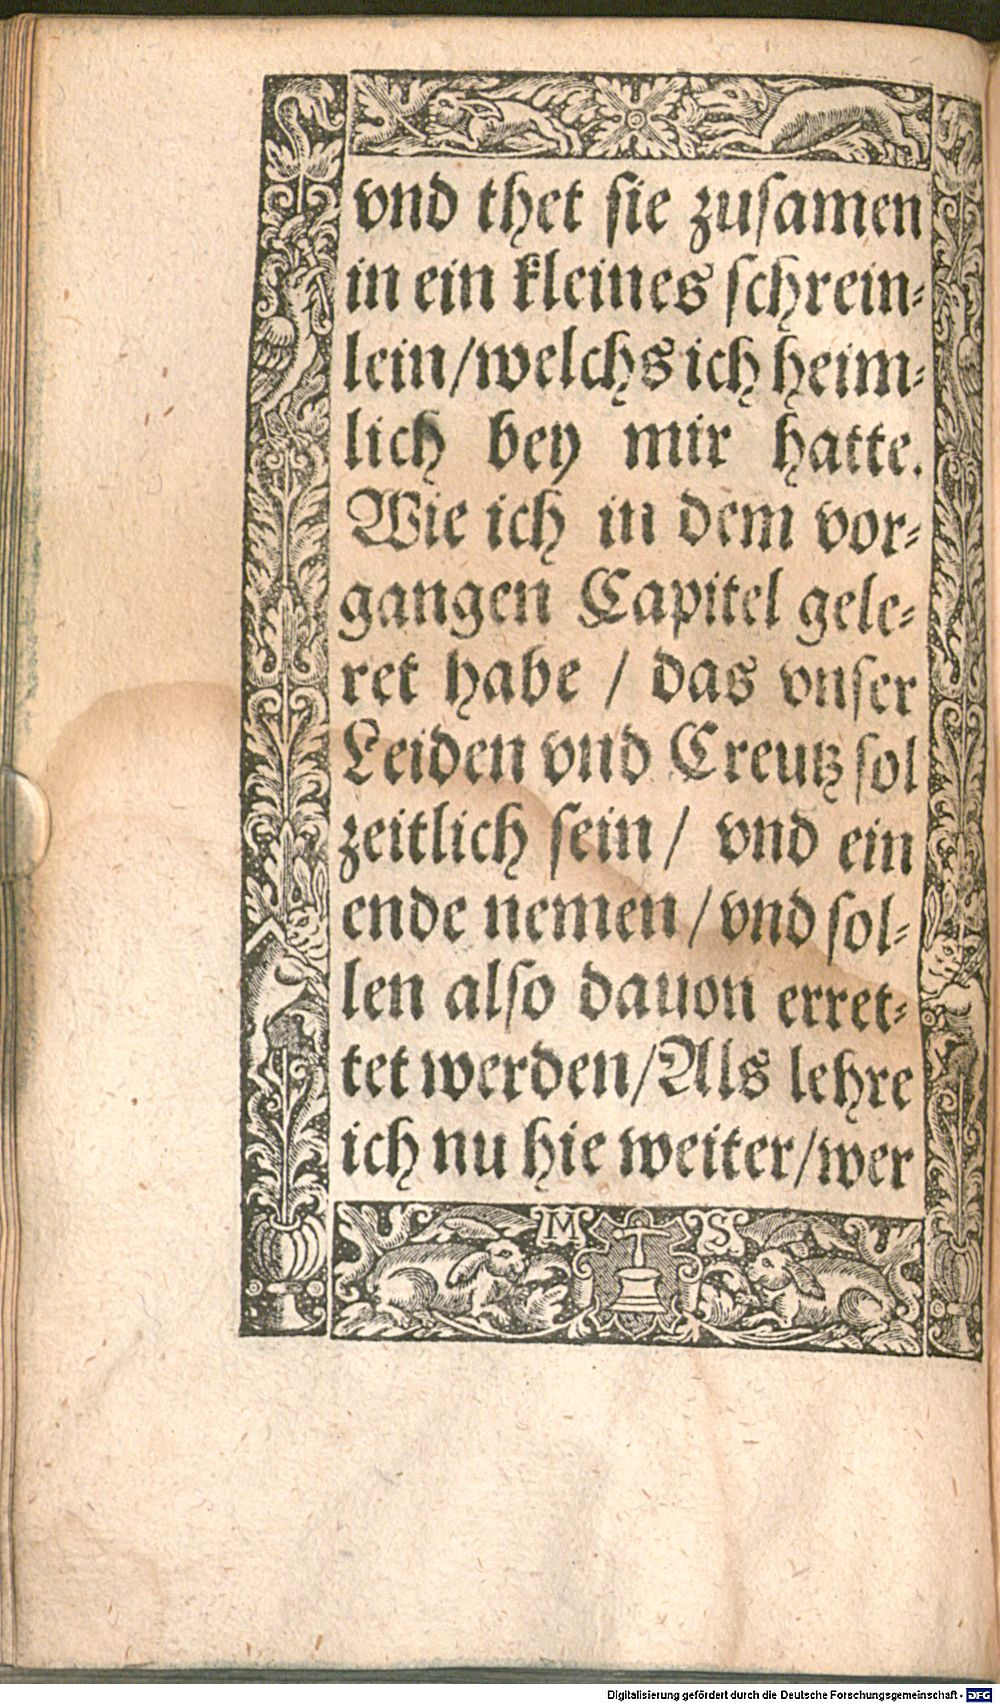 vnd thet sie zusamen
in ein kleines schrein⸗
lein/welchs ich heim⸗
lich bey mir hatte.
Wie ich in dem vor⸗
gangen Capitel gele⸗
ret habe / das vnser
Leiden vnd Creutz sol
zeitlich sein/ vnd ein
ende nemen/vnd sol⸗
len also dauon erret⸗
tet werden/Als lehre
ich nu hie weiter/wer
M S
Digitalisierung gefördert durch die Deutsche Forschungsgemeinschaft - DFG